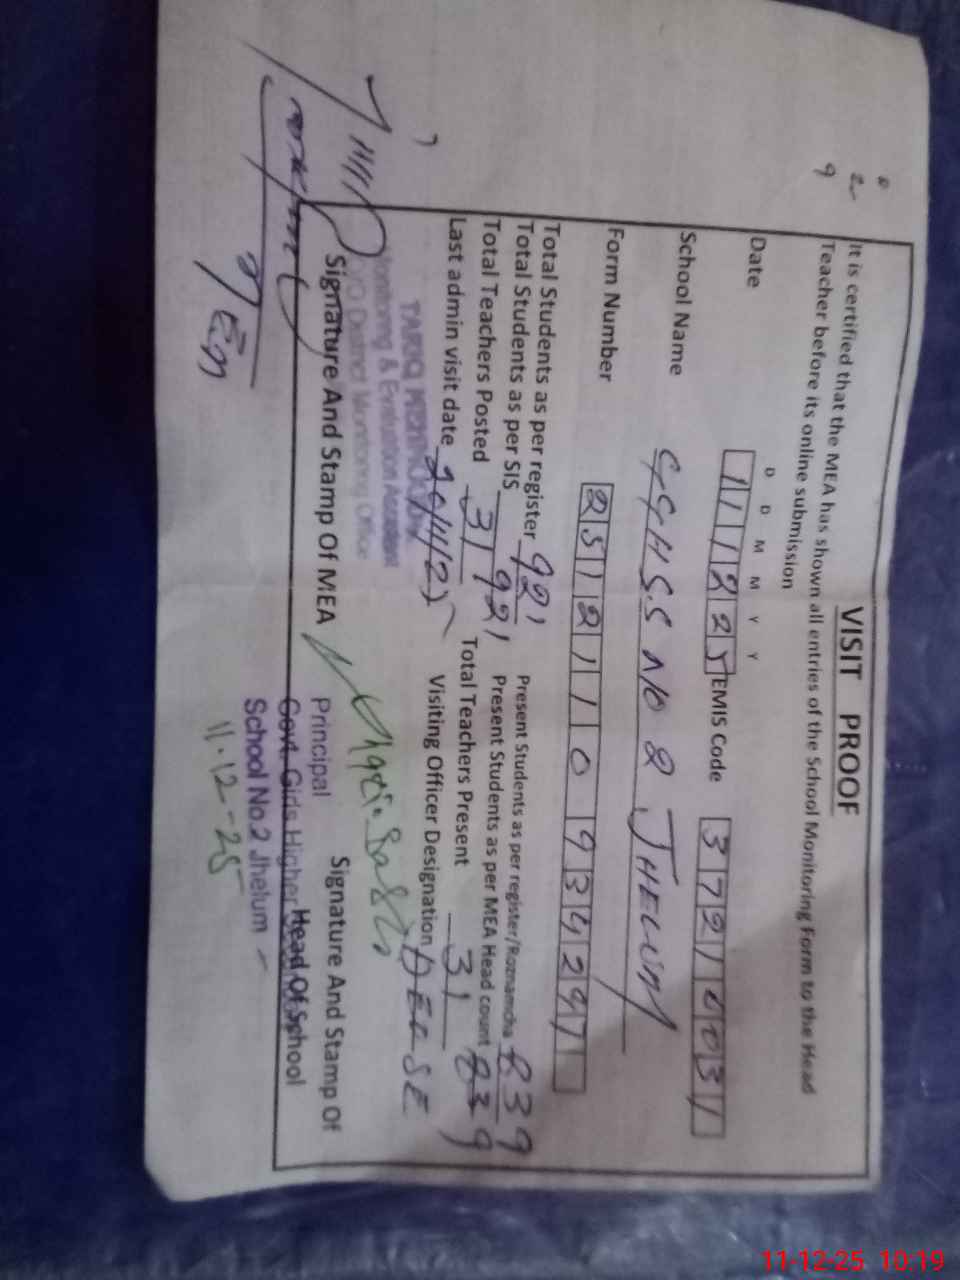 VISIT PROOF
It is certified that the MEA has shown all entries of the School Monitoring Form to the Head
Teacher before its online submission
D D M M Y Y
Date 111225 EMIS Code 37210031
School Name GGHSS NO 2 JHELUM
Form Number 2512110934297
Total Students as per register 921 Present Students as per register/Roznamcha 839
Total Students as per SIS 921 Present Students as per MEA Head count 839
Total Teachers Posted 31 Total Teachers Present 31
Last admin visit date Visiting Officer Designation DEO SE
Monitoring & Evaluation Assistant
O/O District Monitoring Office
Signature And Stamp Of MEA
Signature And Stamp Of
Head Of School
Principal
Govt. Girls Higher
School No.2 Jhelum
11-12-25
11-12-25 10:19